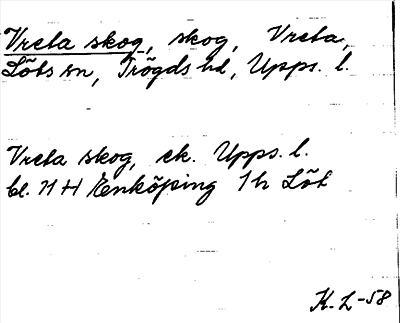 Vreta skog, skog, Vreta,
Löts sn, Trögds hd, Upps. l.
Vreta skog, ek. Upps. l.
bl. 71 H Enköping 1h Löt
K. L-58